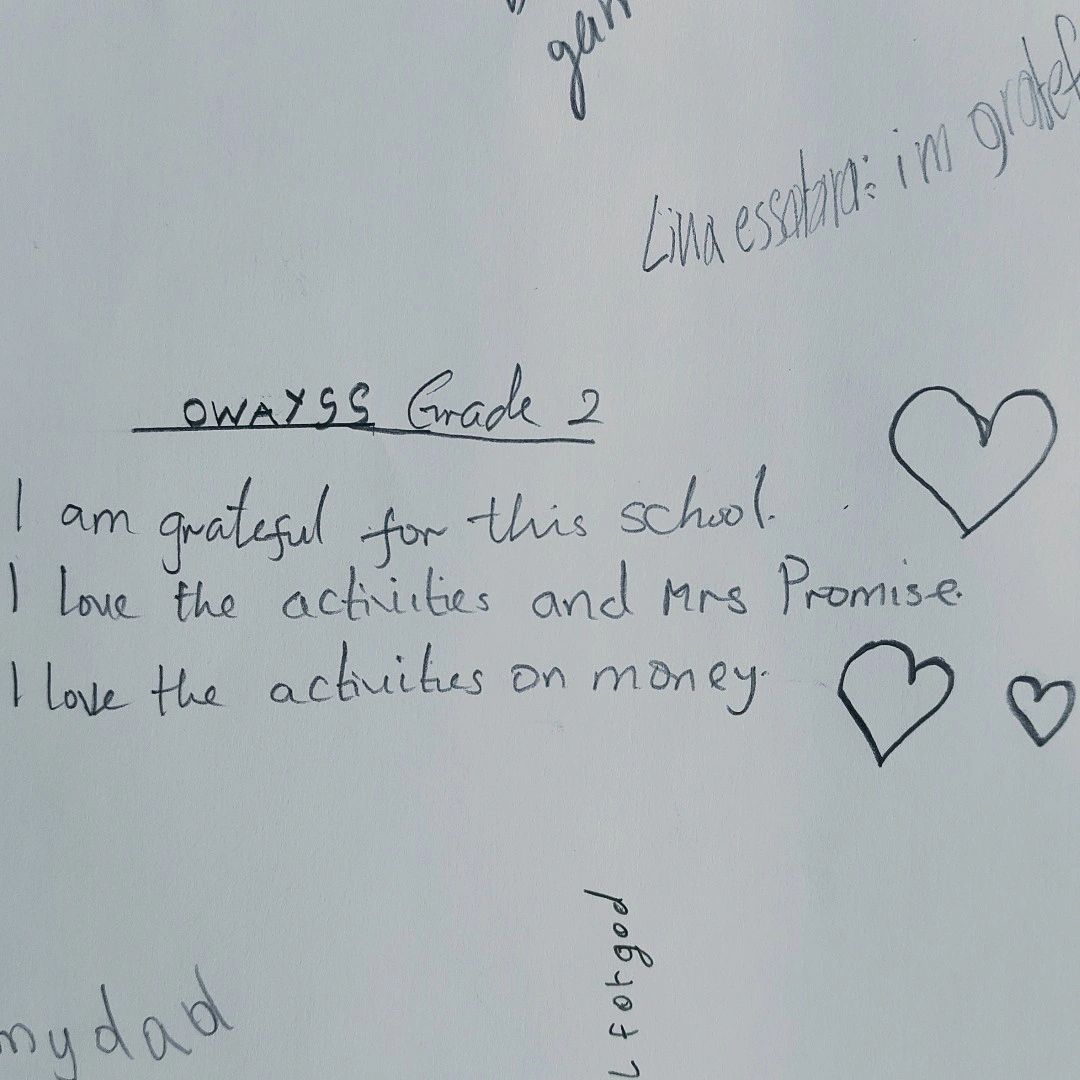 Lina essatara: im gratef
OWAYSS Grade 2
I am grateful for this school.
I love the activities and Mrs Promise.
I love the activities on money.
L for god
my dad